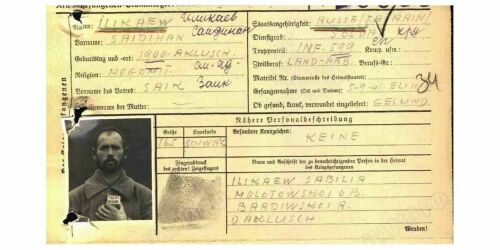 Kriegsgefangenen-Stammlager:
Name: ILIKAEW Иликаев
Staatsangehörigkeit: RUSSE/TATARIN/
Vorname: SAIDIHAN
Dienstgrad: SOLDAT кр
Truppenteil: INF. 599 Kom. usw.:
Geburtstag und -ort: 1900 - AKLUSCH.
Zivilberuf: LAND-ARB. Berufs-Gr.:
Religion: MOGOMIT.
Matrikel Nr. (Stammrolle des Heimatstaates):
Vorname des Vaters: SAIK Заик
Gefangennahme (Ort und Datum): 5-9-41 ELIN
Familienname der Mutter:
Ob gesund, krank, verwundet eingeliefert: GESUND
34
Nähere Personalbeschreibung
Größe Haarfarbe Besondere Kennzeichen: KEINE
165 SCHWARZ
Fingerabdruck
des rechten! Zeigefingers
Name und Anschrift der zu benachrichtigenden Person in der Heimat
des Kriegsgefangenen
ILIKAEW SABILIA
MOLOTOWSKOI OB.
BARDIWSKOI R.
D AKLUSCH
Wenden!